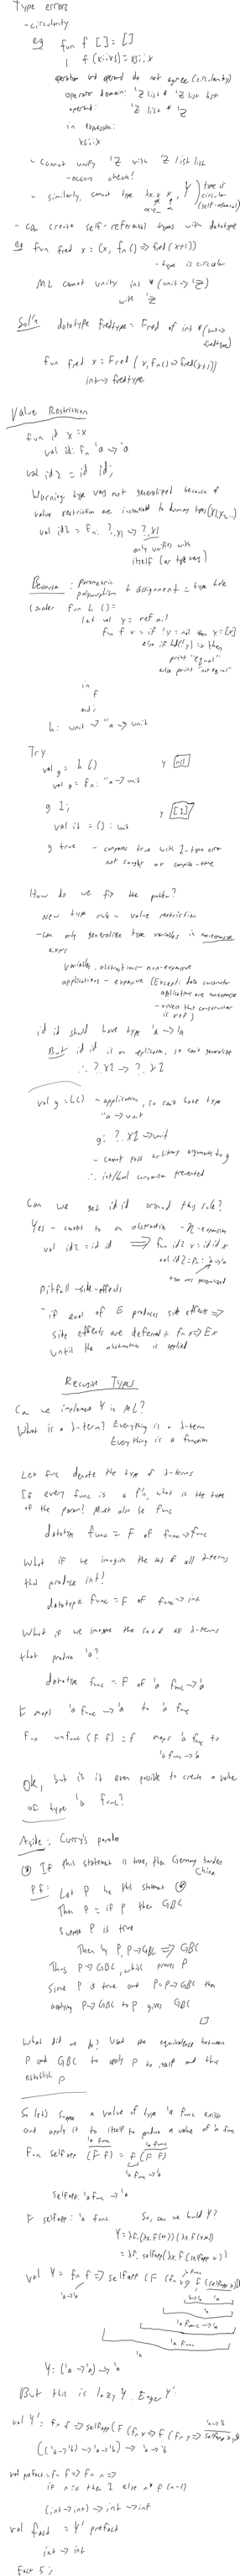 Type errors
- circularity
eg fun f [] = []
| f (x::xs) = xs::x
operator and operand do not agree (circularity)
operator domain: 'Z list * 'Z list list
operand: 'Z list * 'Z
in expression:
xs::x
- cannot unify 'Z with 'Z list list
- occurs check!
- similarly, cannot type λx. x x, Y
type is circular (self-referential)
- can create self-referential types with datatype
eg fun fred x = (x, fn () => fred (x+1))
- type is circular
ML cannot unify int * (unit -> 'Z)
with 'Z
Sol'n datatype fredtype = Fred of int * (unit -> fredtype)
fun fred x = Fred (x, fn () => fred(x+1))
int -> fredtype
Value Restriction
fun id x = x
val id: fn 'a -> 'a
val id2 = id id;
Warning: type vars not generalized because of
value restriction are instantiated to dummy types (X1, X2, ...)
val id2 = fn: ?.X1 -> ?.X1
only unifies with
itself (or type vars)
Because: parametric polymorphism + assignment = type hole
Consider fun h () =
let val y = ref nil
fun f x = if !y = nil then y := [x]
else if hd(!y) = x then
print "equal"
else print "not equal"
in
f
end;
h: unit -> ''a -> unit
Try
val g = h () y [nil]
val g = fn: ''a -> unit
g 1; y [[1]]
val it = () : unit
g true - compares true with 1 - type error
not caught at compile-time
How do we fix the problem?
New type rule - value restriction
- can only generalize type variables in nonexpansive
exprs
variables, abstractions - non-expansive
applications - expansive (Except: data constructor
applications are nonexpansive
- unless that constructor
is ref)
id id should have type 'a -> 'a
But id id is an application, so can't generalize
∴ ?.X1 -> ?.X1
val g = h() - application, so can't have type
''a -> unit
g: ?.X1 -> unit
- cannot pass arbitrary arguments to g
∴ int/bool comparison prevented
Can we get id id around this rule?
Yes - convert to an abstraction - η-expansion
val id2 = id id ⟹ fun id2 x = id id x
val id2 = fn: 'a -> 'a
type vars generalized
Pitfall - side-effects
- if eval of E produces side effects ⟹
side effects are deferred in fn x => E x
until the abstraction is applied
Recursive Types
Can we implement Y in ML?
What is a λ-term? Everything is a λ-term
Everything is a function
Let func denote the type of λ-terms
If every func is a f'n, what is the type
of the param? Must also be func
datatype func = F of func -> func
What if we imagine the set of all λ-terms
that produce int?
datatype func = F of func -> int
What if we imagine the set of all λ-terms
that produce 'a?
datatype 'a func = F of 'a func -> 'a
F maps 'a func -> 'a to 'a func
Fun unfunc (F f) = f maps 'a func to
'a func -> 'a
Ok, but is it even possible to create a value
of type 'a func?
Aside: Curry's paradox
(*) If this statement is true, then Germany borders
China
Pf: Let P be this statement (*)
Then P = if P then GBC
Suppose P is true
Then by P, P -> GBC ⟹ GBC
Thus P -> GBC, which proves P
Since P is true and P = P -> GBC then
applying P -> GBC to P gives GBC
What did we do? Used the equivalence between
P and GBC to apply P to itself and thus
establish P
So let's suppose a value of type 'a func exists
and apply it to itself to produce a value of 'a func
Fun selfapp (F f) = f (F f)
'a func 'a func
'a func -> 'a
selfapp: 'a func -> 'a
F selfapp: 'a func So, can we build Y?
Y = λf. (λx. f(xx)) (λx. f(xx))
= λf. selfapp(λx. f(selfapp x))
val Y = fn f => selfapp (F (fn x => f (selfapp x)))
'a -> 'a
'a func
'a
'a func -> 'a
'a func
'a
Y: ('a -> 'a) -> 'a
But this is lazy Y. Eager Y':
val Y' = fn f => selfapp (F (fn x => f (fn y => selfapp x y)))
'a -> 'b
(('a -> 'b) -> 'a -> 'b) -> 'a -> 'b
val prefact = fn f => fn n =>
if n = 0 then 1 else n * f (n-1)
(int -> int) -> int -> int
val fact = Y' prefact
int -> int
fact 5;